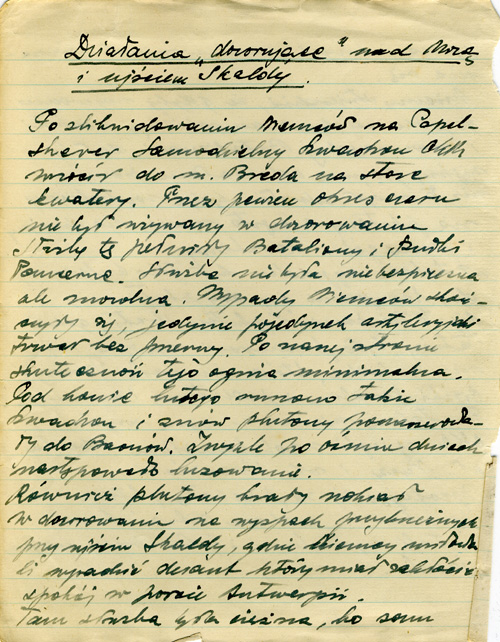 Działania „dozorujące” nad Mozą
i ujściem Skaldy.
Po zlikwidowaniu Niemców na Capel-
sheveer Samodzielny Szwadron CKM
wrócił do m. Breda na stare
kwatery. Przez pewien okres czasu
nie był używany w dozorowaniu
służby tę pełniły Bataliony i Pułki
Pancerne. Służba nie była niebezpieczna
ale mozolna. Wypady Niemców skoń-
czyły się, jedynie pojedynek artyleryjski
trwał bez przerwy. Po naszej stronie
skuteczność tego ognia minimalna.
Pod koniec lutego ruszono także
szwadron i znów plutony
do Baonów. Zwykle po ośmiu dniach
następowało luzowanie.
Również plutony brały udział
w dozorowaniu na wyspach przybrzeżnych
przy ujściu Skaldy, gdzie Niemcy
wysadzić desant który miał zakłócić
spokój w porcie Antwerpii.
Tam służba była ciężka, bo samu